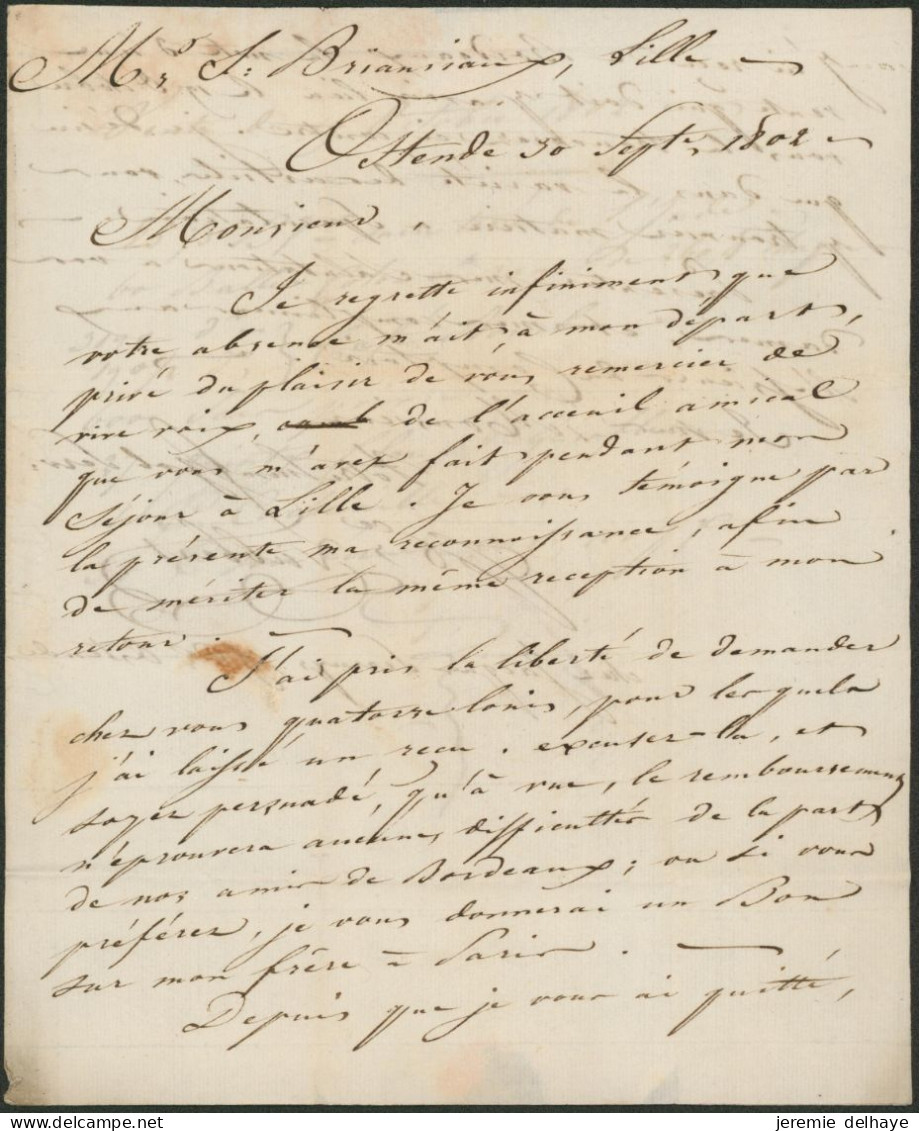 Mr. S: Briansiaux, Lille
Ostende 30 Septr. 1802
Monsieur,
Je regrette infiniment que
votre absence m'ait, à mon départ,
privé du plaisir de vous remercier de
vive voix, de l'acceuil amical
que vous m'avez fait pendant mon
séjour à Lille. Je vous témoigne par
la présente ma reconnoissance, afin
de mériter la même reception à mon
retour.
J'ai pris la liberté de demander
chez vous quatorze louis, pour lesquels
j'ai laissé un recu. excusez-la, et
soyez persuadé, qu'à vue, le remboursement
n'éprouvera aucunes difficultés de la part
de nos amis de Bordeaux; ou si vous
préférez, je vous donnerai un Bon
sur mon frère à Paris.
Depuis que je vous ai quitté,
jeremie delhaye